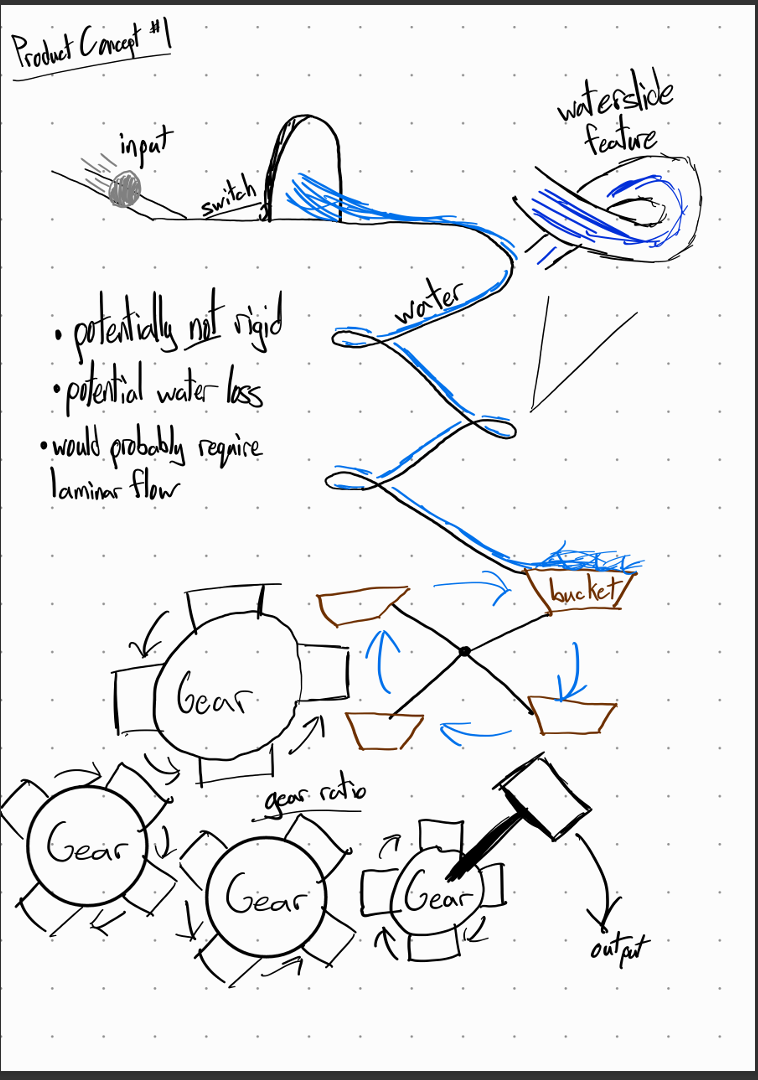 Product Concept #1
input
switch
waterslide
feature
water
• potentially not rigid
• potential water loss
• would probably require
laminar flow
bucket
Gear
gear ratio
Gear
Gear
Gear
output